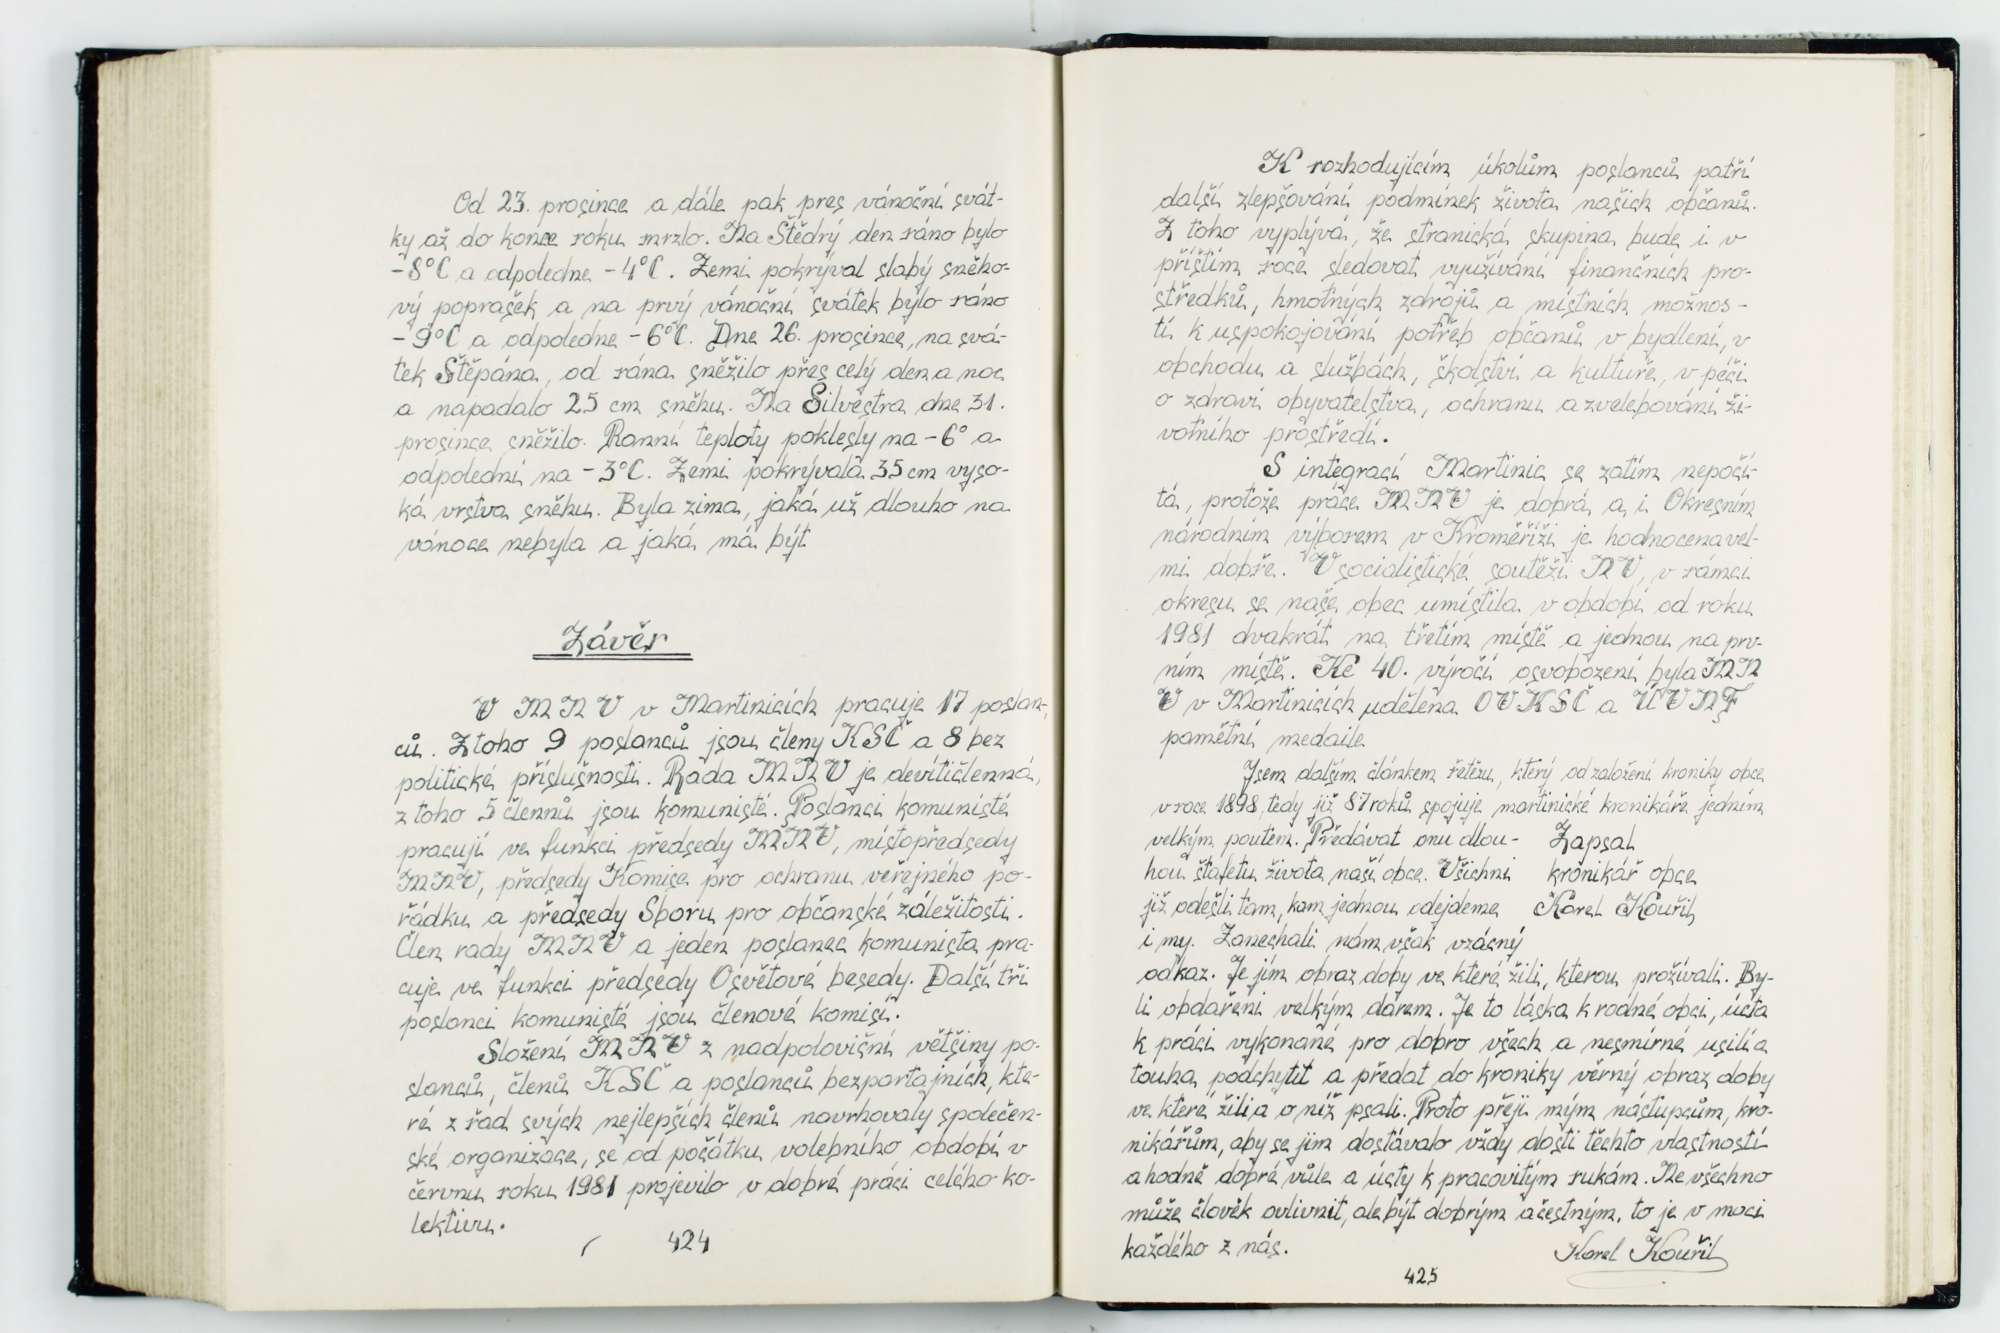 Od 23. prosince a dále pak pres vánoční svát-
ky až do konce roku mrzlo. Na Štědrý den ráno bylo
-8°C a odpoledne -4°C. Zemi pokrýval slabý sněho-
vý poprašek a na prvý vánoční svátek bylo ráno
-9°C a odpoledne -6°C. Dne 26. prosince, na svá-
tek Štěpána, od rána sněžilo přes celý den a noc
a napadalo 25 cm sněhu. Na Silvestra dne 31.
prosince sněžilo. Ranní teploty poklesly na -6° a
odpolední na -3°C. Zemi pokrývala 35 cm vyso-
ká vrstva sněhu. Byla zima, jaká už dlouho na
vánoce nebyla a jaká má být
Závěr
V MNV v Martinicích pracuje 17 poslan-
ců. Z toho 9 poslanců jsou členy KSČ a 8 bez
politické příslušnosti. Rada MNV je devítičlenná,
z toho 5 členů jsou komunisté. Poslanci komunisté
pracují ve funkci předsedy MNV, místopředsedy
MNV, předsedy Komise pro ochranu veřejného po-
řádku a předsedy Sboru pro občanské záležitosti.
Člen rady MNV a jeden poslanec komunista pra-
cuje ve funkci předsedy Osvětové besedy. Další tři
poslanci komunisté jsou členové komisí.
Složení MNV z nadpoloviční většiny po-
slanců, členů KSČ a poslanců bezpartajních, kte-
ré z řad svých nejlepších členů navrhovaly společen-
ské organizace, se od počátku volebního období v
červnu roku 1981 projevilo v dobré práci celého ko-
lektivu.
424
K rozhodujícím úkolům poslanců patří
další zlepšování podmínek života našich občanů.
Z toho vyplývá, že stranická skupina bude i v
příštím roce sledovat využívání finančních pro-
středků, hmotných zdrojů a místních možnos-
tí k uspokojování potřeb občanů v bydlení, v
obchodu a službách, školství a kultuře, v péči
o zdraví obyvatelstva, ochranu a zvelebování ži-
votního prostředí.
S integrací Martinic se zatím nepočí-
tá, protože práce MNV je dobrá a i Okresním
národním výborem v Kroměříži je hodnocena vel-
mi dobře. V socialistické soutěži NV, v rámci
okresu se naše obec umístila v období od roku
1981 dvakrát na třetím místě a jednou na prv-
ním místě. Ke 40. výročí osvobození byla MN
V v Martinicích udělena OVKSČ a ÚVNF
pamětní medaile
Jsem dalším článkem řetězu, který od založení kroniky obce
v roce 1898, tedy již 87 roků spojuje martinické kronikáře jedním
velkým poutem. Předávat onu dlou- Zapsal
hou štafetu života naší obce. Všichni kronikář obce
již odešli tam, kam jednou odejdeme Karel Kouřil
i my. Zanechali nám však vzácný
odkaz. Je jím obraz doby ve které žili, kterou prožívali. By-
li obdařeni velkým darem. Je to láska k rodné obci, úcta
k práci vykonané pro dobro všech a nesmírné usilí a
touha podchytit a předat do kroniky věrný obraz doby
ve které žili a o níž psali. Proto přeji mým nástupcům, kro-
nikářům, aby se jim dostávalo vždy dosti těchto vlastností
a hodně dobré vůle a úcty k pracovitým rukám. Ne všechno
může člověk ovlivnit, ale být dobrým a čestným, to je v moci
každého z nás. Karel Kouřil
425